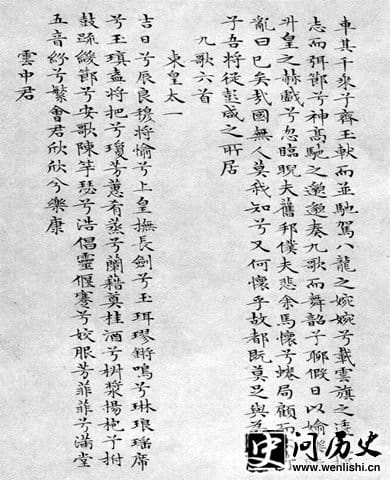 車其千乘兮齊玉軑而並馳駕八龍之婉婉兮載雲旗之逶
志而弭節兮神高馳之邈邈奏九歌而舞韶兮聊假日以媮
升皇之赫戲兮忽臨睨夫舊鄉僕夫悲余馬懷兮蜷局顧而
亂曰已矣哉國無人莫我知兮又何懷乎故都既莫足與為
兮吾將從彭咸之所居
九歌六首
東皇太一
吉日兮辰良穆將愉兮上皇撫長劍兮玉珥璆鏘鳴兮琳琅瑤席
兮玉瑱盍將把兮瓊芳蕙肴蒸兮蘭藉奠桂酒兮椒漿揚枹兮拊
鼓疏緩節兮安歌陳竽瑟兮浩倡靈偃蹇兮姣服芳菲菲兮滿堂
五音紛兮繁會君欣欣兮樂康
雲中君
问历史
www.wenlishi.cn